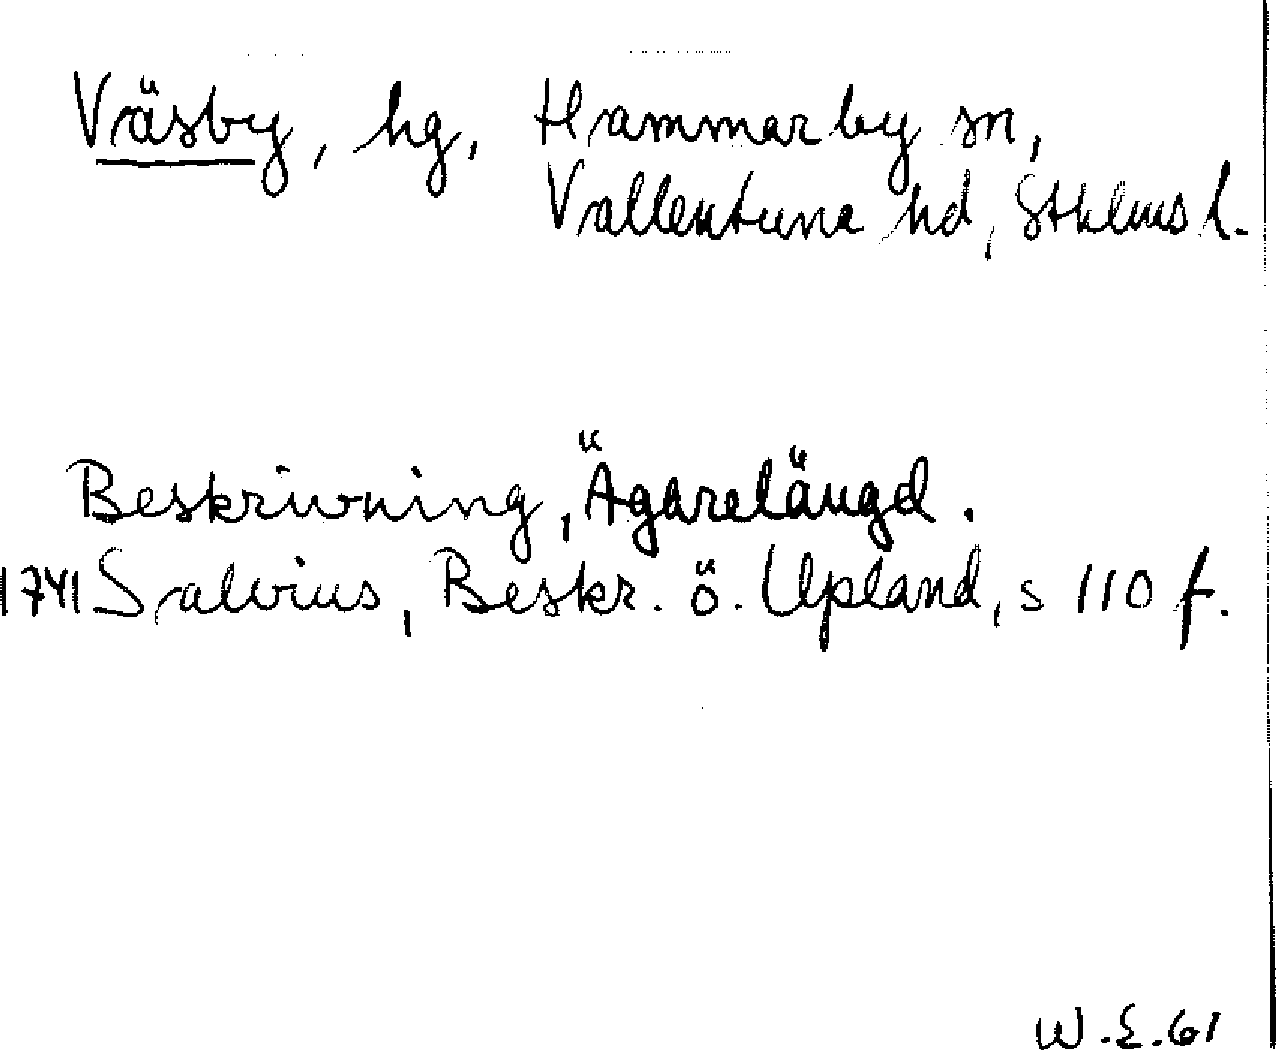 Väsby, hg, Hammarby sn,
Vallentuna hd, Sthlms l.
Beskrivning, Ägarelängd.
1741 Salvius, Beskr. ö. Upland, s 110 f.
W.E.61